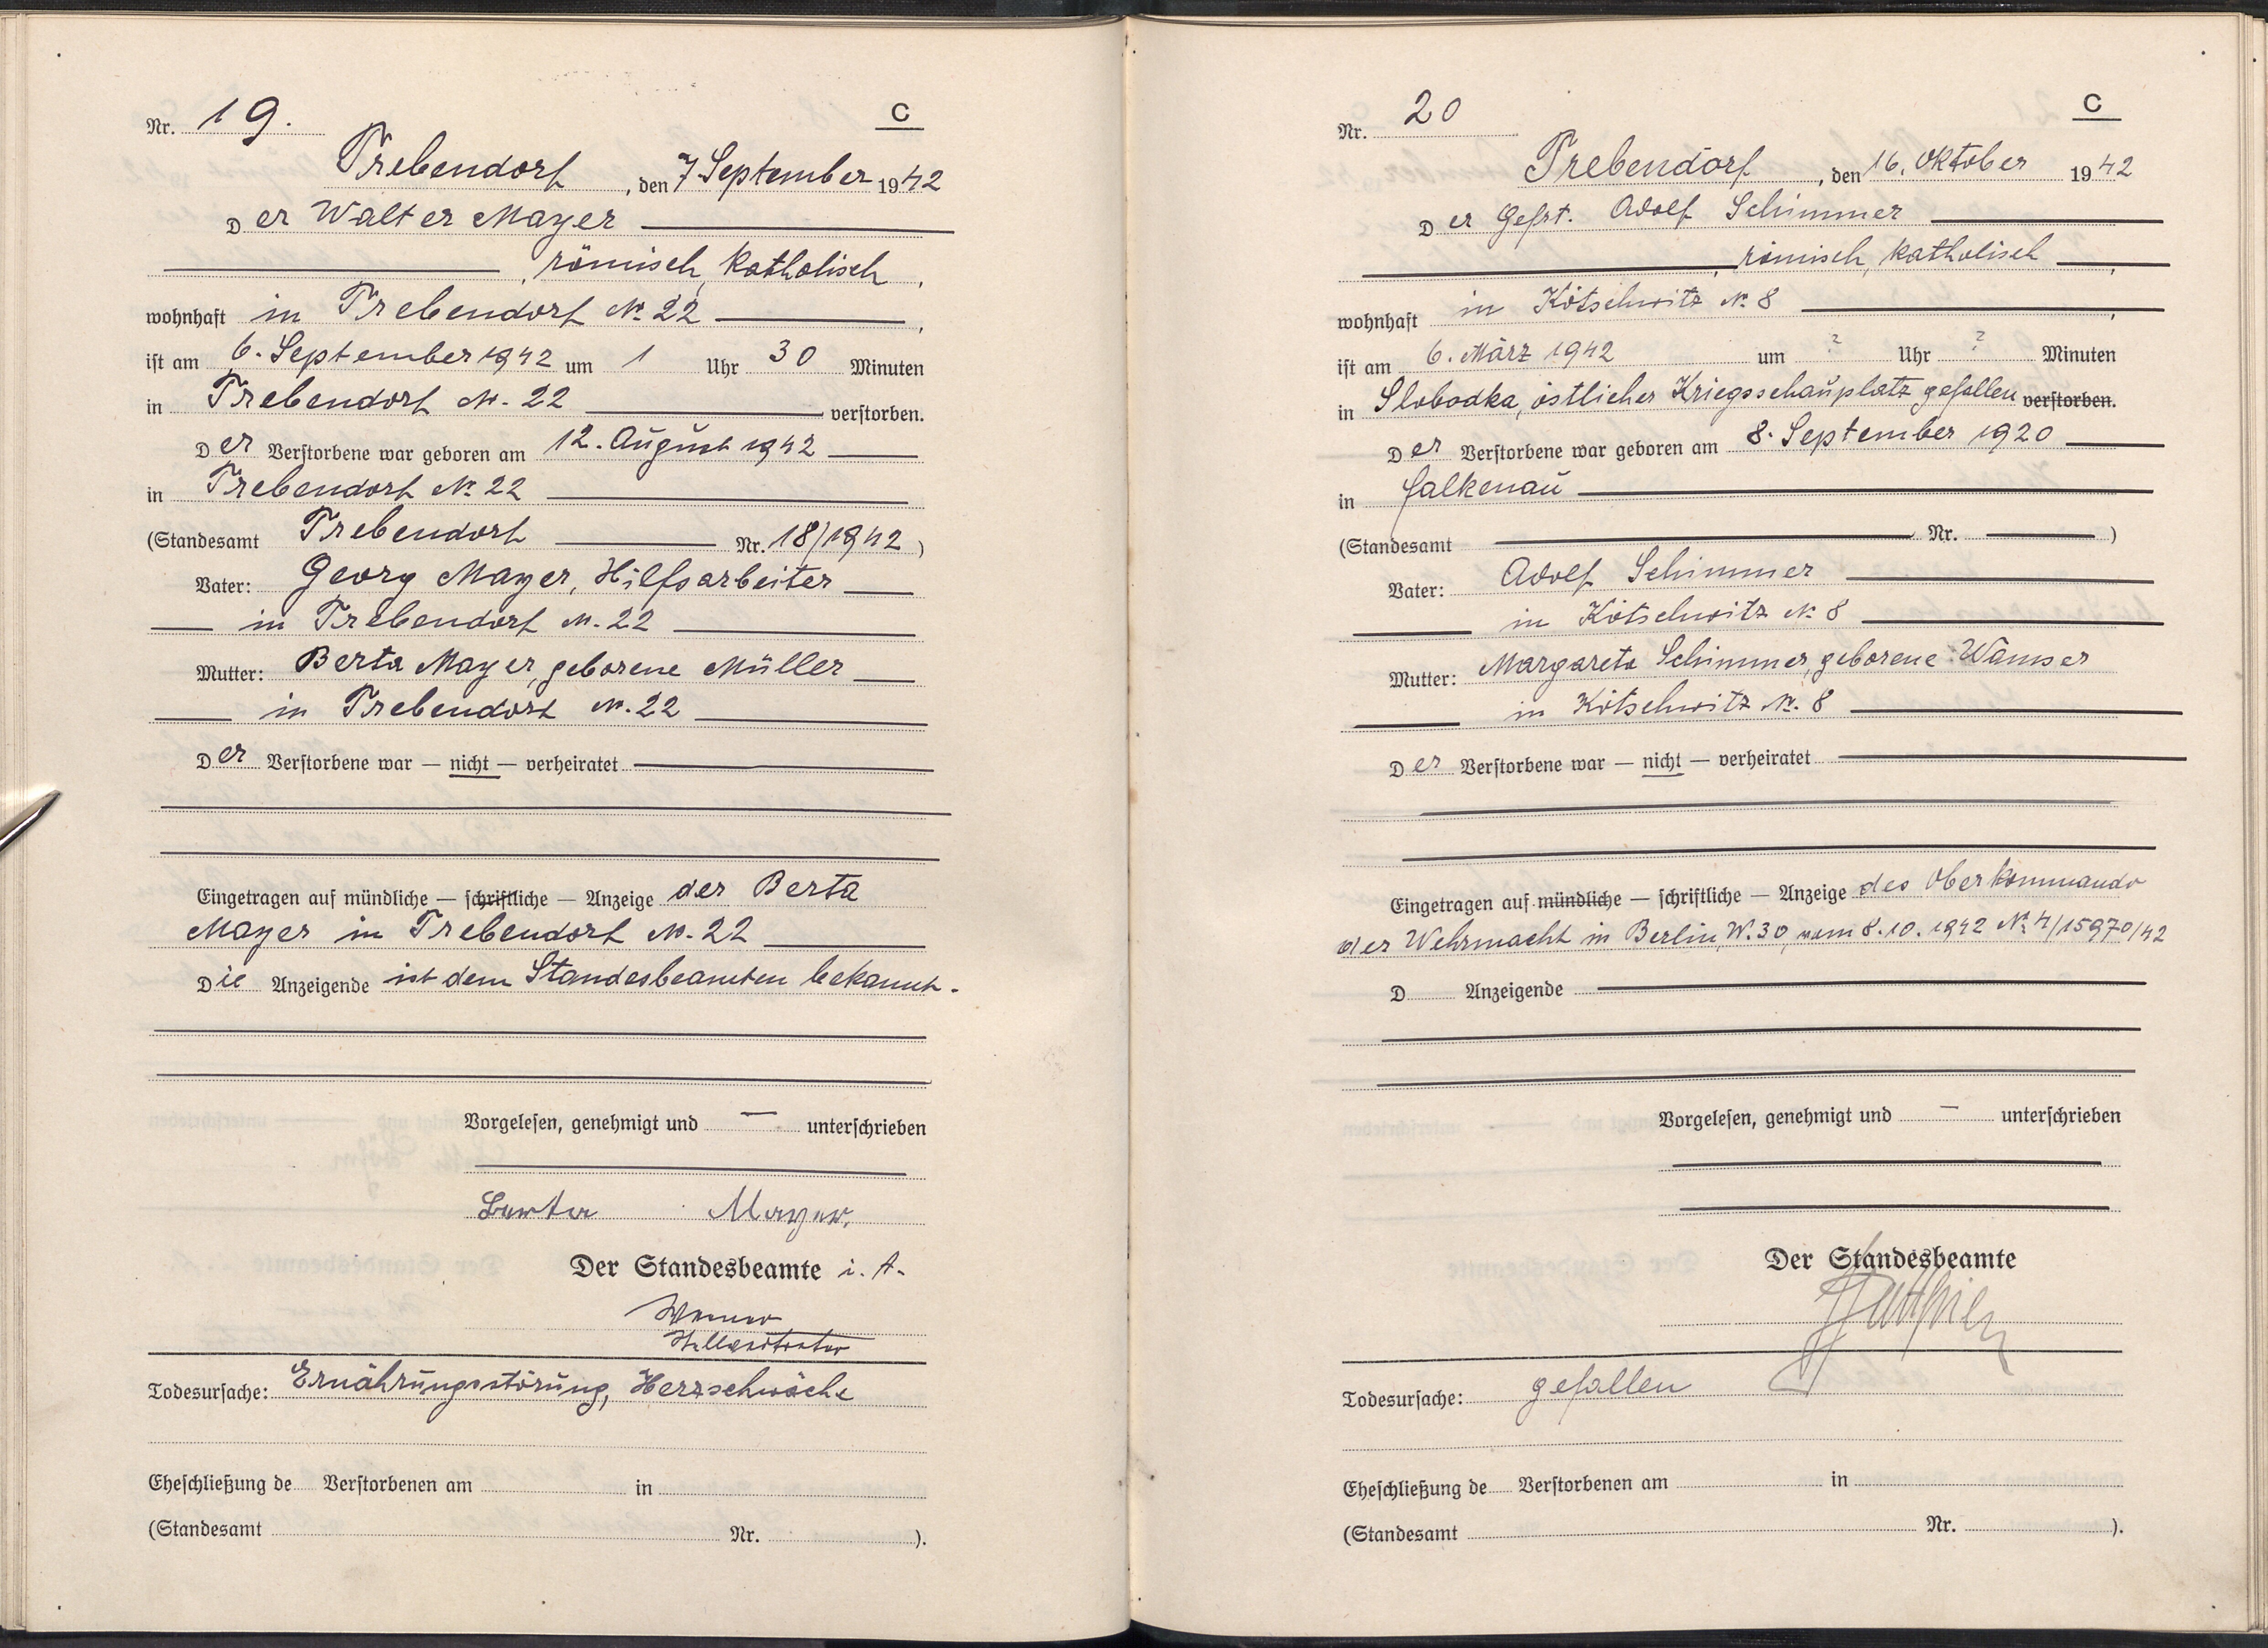 Nr. 19.
C
Trebendorf, den 7 September 1942
Der Walter Mayer
, römisch, katholisch,
wohnhaft in Trebendorf Nr. 22,
ist am 6. September 1942 um 1 Uhr 30 Minuten
in Trebendorf Nr. 22 verstorben.
Der Verstorbene war geboren am 12. August 1942
in Trebendorf Nr. 22
(Standesamt Trebendorf Nr. 18/1942)
Vater: Georg Mayer, Hilfsarbeiter
in Trebendorf Nr. 22
Mutter: Berta Mayer, geborene Müller
in Trebendorf Nr. 22
Der Verstorbene war — nicht — verheiratet
Eingetragen auf mündliche — schriftliche — Anzeige der Berta
Mayer in Trebendorf Nr. 22
Die Anzeigende ist dem Standesbeamten bekannt.
Vorgelesen, genehmigt und — unterschrieben
Berta Mayer.
Der Standesbeamte i. A.
Todesursache: Ernährungsstörung, Herzschwäche
Eheschließung de Verstorbenen am in
(Standesamt Nr. ).
Nr. 20
C
Trebendorf, den 16. Oktober 1942
Der Gefrt. Adolf Schimmer
, römisch, katholisch,
wohnhaft in Kötschwitz Nr. 8,
ist am 6. März 1942 um ? Uhr ? Minuten
in Slobodka, östlicher Kriegsschauplatz gefallen verstorben.
Der Verstorbene war geboren am 8. September 1920
in Falkenau
(Standesamt Nr. )
Vater: Adolf Schimmer
in Kötschwitz Nr. 8
Mutter: Margareta Schimmer, geborene Wamser
in Kötschwitz Nr. 8
Der Verstorbene war — nicht — verheiratet
Eingetragen auf mündliche — schriftliche — Anzeige des Oberkommando
der Wehrmacht in Berlin, W. 30, vom 8.10.1942 Nr. 4/15970/42
D Anzeigende
Vorgelesen, genehmigt und — unterschrieben
Der Standesbeamte
Todesursache: gefallen
Eheschließung de Verstorbenen am in
(Standesamt Nr. ).